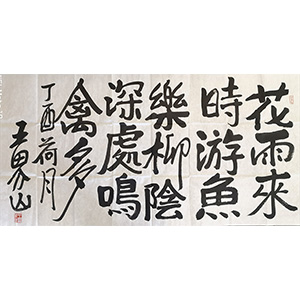 花雨來
時游魚
樂柳陰
深處鳴
禽多
丁酉荷月